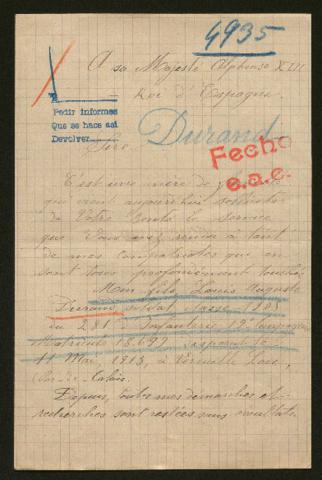 4935
A sa Majesté Alphonse XIII
Roi d'Espagne
Pedir informes
Que se hace asi
Devolver
Durand
Sire,
Fecho
e.a.c.
C'est une mère de
qui vient aujourd'hui solliciter
de Votre Bonté le service
que Vous avez rendu à tant
de mes compatriotes qui en
sont tous profondément touchés
Mon fils, Louis Auguste
Durand soldat classe 1908
du 281 Infanterie 19 Compagnie
Matricule 18699 disparut le
11 Mai 1915, à Vermelle,
Pas-de-Calais.
Depuis, toutes mes démarches et
recherches sont restées sans résultats